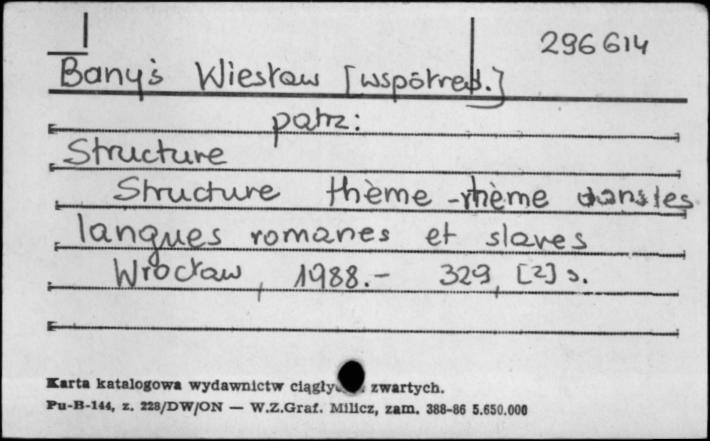 296614
Banyś Wiesław [współred.]
patrz:
Structure
Structure thème-rhème dans les
langues romanes et slaves
Wrocław, 1988.- 329, [2] s.
Karta katalogowa wydawnictw zwartych.
Pu-B-144, z. 228/DW/ON — W.Z.Graf. Milicz, zam. 388-86 5.650.000